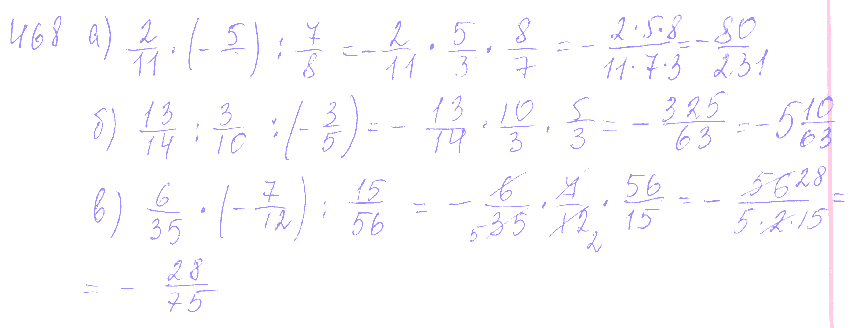 468 а) 2/11 · (- 5/ ) : 7/8 = - 2/11 · 5/3 · 8/7 = - 2·5·8/11·7·3 = - 80/231
б) 13/14 : 3/10 : (- 3/5) = - 13/14 · 10/3 · 5/3 = - 325/63 = -5 10/63
в) 6/35 · (- 7/12) : 15/56 = - 6/5 35 · 7/12 2 · 56/15 = - 56 28/5·2·15 =
= - 28/75